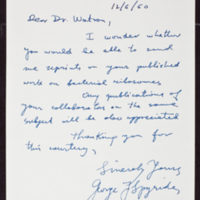 12/6/60
Dear Dr. Watson,
I wonder whether
you would be able to send
me reprints on your published
work on bacterial ribosomes
Any publications of
your collaborators on the same
subject will be also appreciated
Thanking you for
this courtesy,
Sincerely Yours,
George J Spyrides